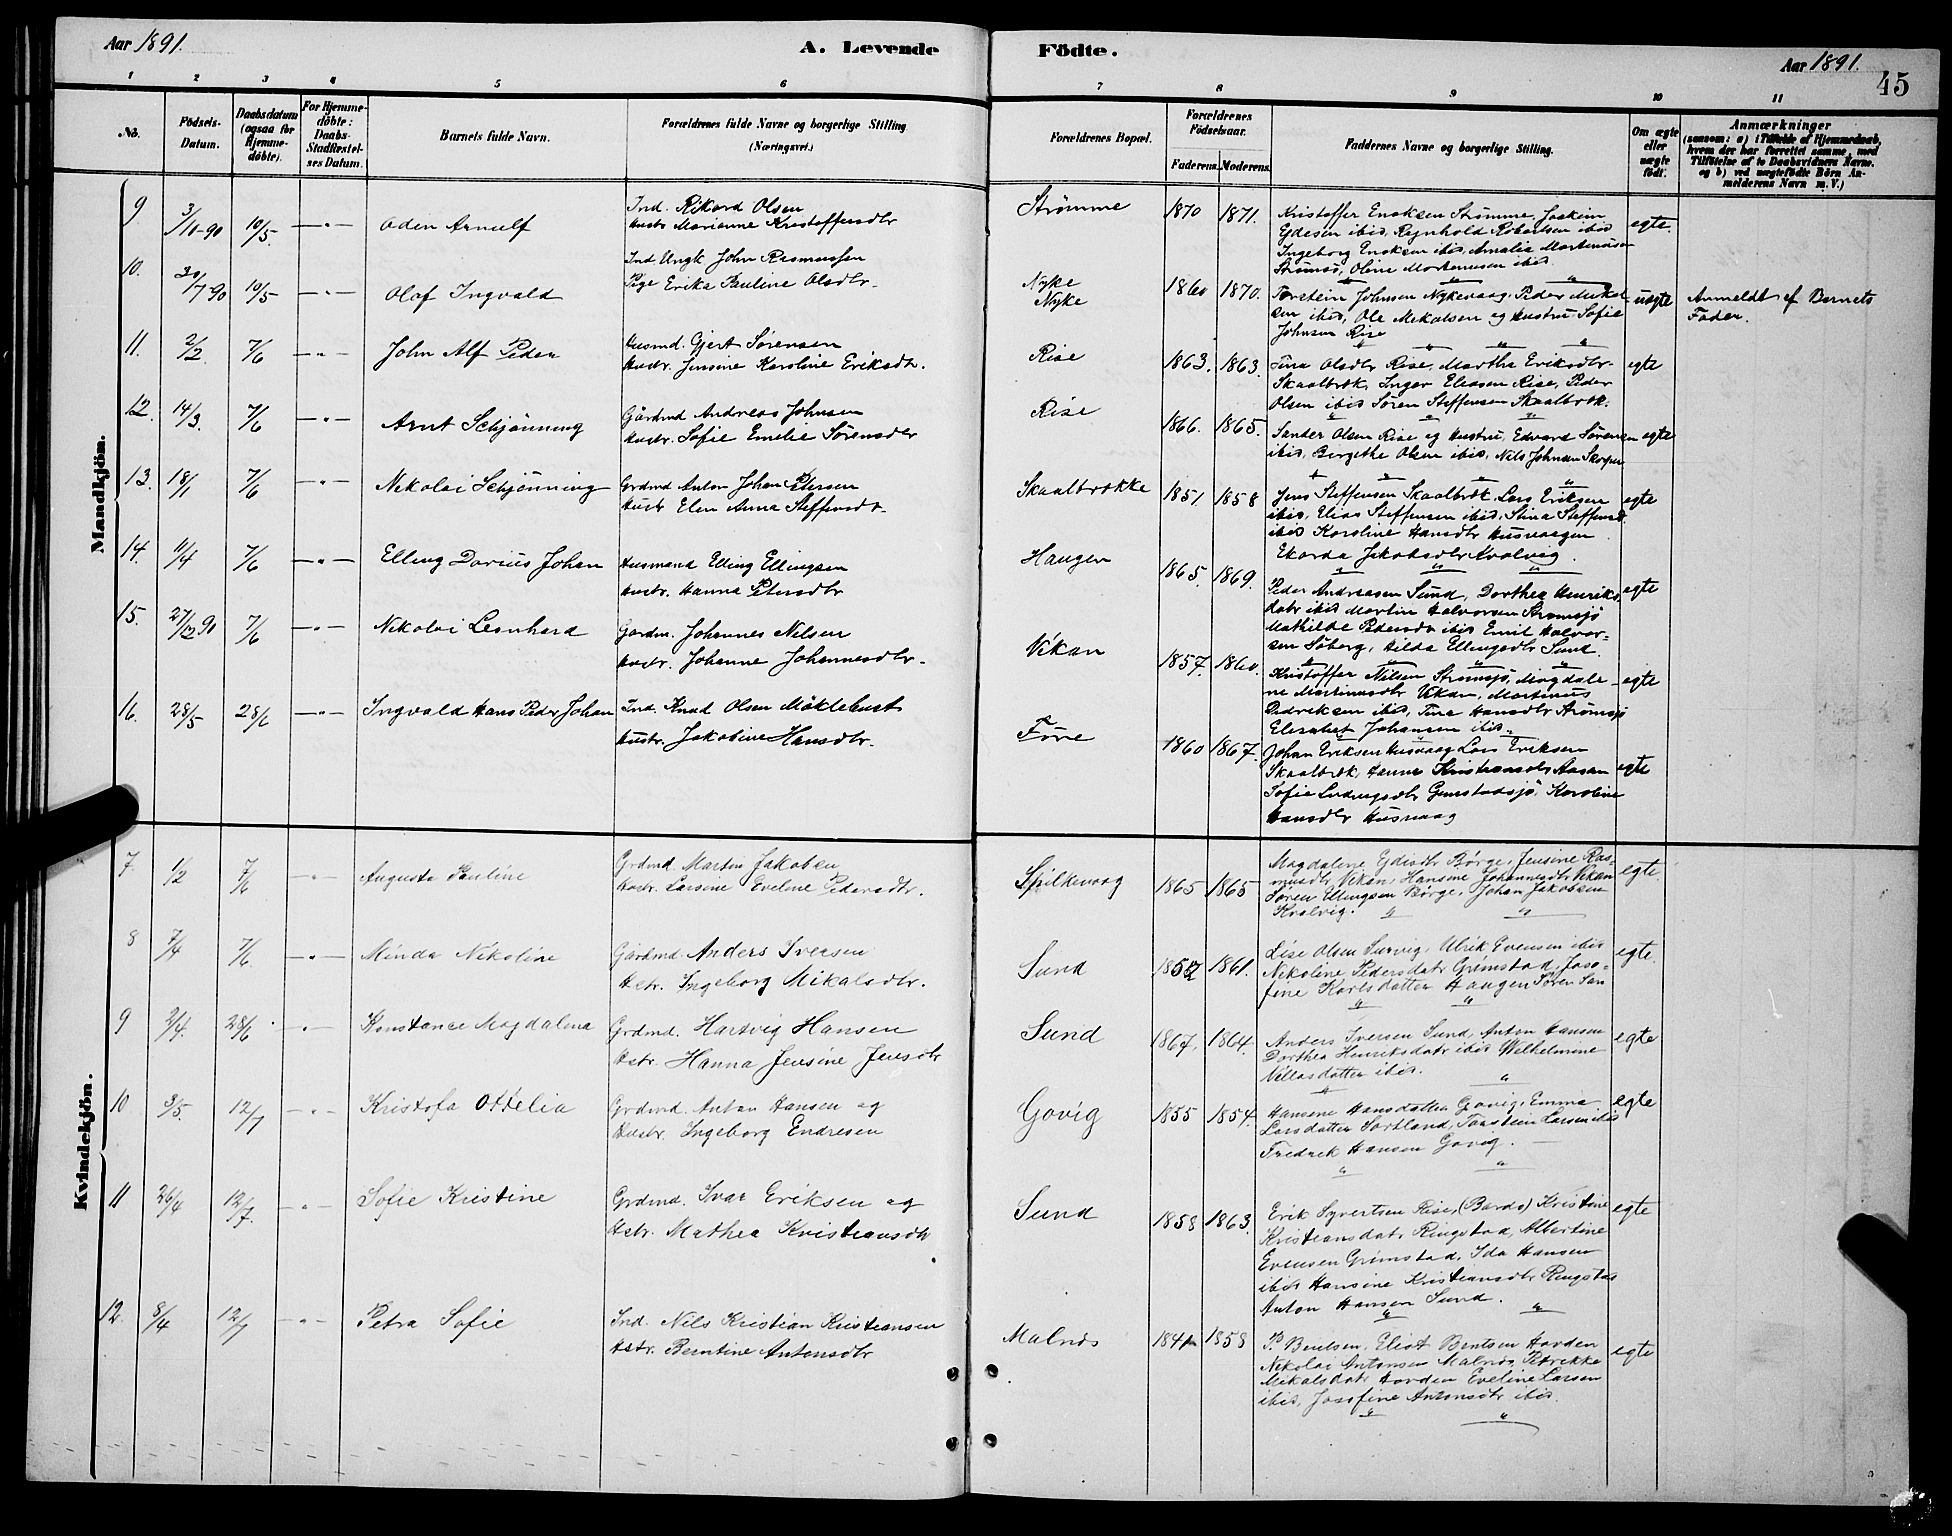 Aar 1891.
A. Levende Födte.
Aar 1891.
45
1 2 3 4 5 6 7 8 9 10 11
No.
Födsels-
Datum.
Daabsdatum
(ogsaa for
Hjemme-
döbte).
For Hjemme-
döbte:
Daabs-
Stadfæstel-
ses Datum.
Barnets fulde Navn.
Forældrenes fulde Navne og borgerlige Stilling
(Næringsvei.)
Forældrenes Bopæl.
Forældrenes
Födselsaar.
Faderens. Moderens.
Faddernes Navne og borgerlige Stilling.
Om ægte
eller
uægte
födt.
Anmærkninger
(saasom: a) i Tilfælde af Hjemmedaab,
hvem der har forrettet samme, med
Tilföielse af to Daabsvidners Navne.
og b) ved uægtefödte Börn An-
melderens Navn m. V.)
Mandkjön.
9 3/10-90 10/5. —"— Odin Arnulf
Ind. Rikard Olsen
Hustr Marianne Kristoffersdtr
Strømme 1870 1871.
Kristoffer Enoksen Strømme, Joakim
Edisen ibid, Reinhold Robertsen ibid
Ingeborg Enoksen ibid, Amalia Martinusen
Strømsö, Oline Mortensen ibid.
egte.
10. 30/7 90 10/5 —"— Olaf Ingvald
Ind Ungk John Rasmussen
Pige Erika Pauline Olsdtr.
Nyke
Nyke
1860 1870.
Torstein Johnsen Nykevaag, Peder Mikal-
sen ibid, Ole Mikalsen og Hustru Sofie
Johnsen Rise
uegte
Anmeldt af Barnets
Fader.
11. 2/2. 7/6 —"— John Alf Peder
Husmd. Gjert Sørensen
Hustr. Jensine Karoline Eriksdtr.
Rise 1863. 1863.
Tina Olsdtr Rise, Martha Eriksdtr
Skaalbrok, Inger Eliasen Rise, Peder
Olsen ibid Søren Steffensen Skaalbrok.
egte
12. 14/3. 7/6 —"— Arnt Schjønning
Gårdmd Andreas Johnsen
Hustr. Sofie Emelie Sørensdtr
Rise 1866. 1865.
Sander Olsen Rise og Hustru, Edvard Sørensen
ibid, Bergithe Olsen ibid, Nils Johnsen
egte
13. 18/1 7/6 —"— Nikolai Schjønning
Grdmd Anton Johan Petersen
Hustr Elen Anna Steffensdtr
Skaalbrokke 1851. 1858
Jens Steffensen Skaalbrok, Lars Eriksen
ibid, Elias Steffensen ibid, Stina Steffensd.
ibid Karoline Hansdtr Husvaagen
Ekorda Jakobsdtr Kvalvig.
egte
14. 11/4 7/6 —"— Elling Dorius Johan
Husmand Elling Ellingsen
Hustr. Hanna Petersdtr
Haugen 1865. 1869.
Peder Andreasen Sund, Dorthea Henriks-
datr ibid Martin Halvorsen Strømsjø
Mathilde Pedersdtr ibid Emil Halvor-
sen Soberg, Hilda Ellingsdtr Sund.
egte
15. 27/12 90 7/6 —"— Nikolai Leonhard
Gardm. Johannes Nilsen
Hustr. Johanne Johannesdtr.
Vikan 1857. 1860.
Kristoffer Nilsen Strømsjø, Magdale-
ne Martinusdtr Vikan, Martinus
Pedriksen ibid, Tina Hansdtr Strømsjø
Elisabet Johansen ibid.
egte
16. 28/5 28/6 —"— Ingvald Hans Peder Johan
Ind. Knud Olsen Møklehust
Hustr. Jakobine Hansdtr.
Føre 1860 1867.
Johan Eriksen Husvaag Lars Eriksen
Skaalbrok, Hanna Kristiansdtr Aasan
Sofie Ludvigsdtr Grimstadsjø, Karoline
Hansdtr Husvaag
egte
Kvindekjön.
7. 1/2 7/6 —"— Augusta Pauline
Grdmd. Martin Jakobsen
Hustr. Larsine Eveline Pedersdtr.
Spilkevaag 1865 1865
Magdalene Edisdtr Børge, Jensine Ras-
musdtr Vikan, Hansine Johannesdtr Vikan
Søren Ellingsen Børge, Johan Jakobsen
Kvalvig.
egte.
8 7/4 7/6 —"— Minda Nikoline
Gårdmd. Anders Iversen
Hstr. Ingeborg Mikalsdtr.
Sund 1857 1861.
Lise Olsen Survig, Ulrik Evensen ibid
Nikoline Pedersdatr Grimstad, Joso-
fine Karlsdatter Haugen Søren San
egte.
9 2/4. 28/6 —"— Konstance Magdalena
Grdmd. Hartvig Hansen
Hstr. Hanna Jensine Jensdtr
Sund 1867. 1864.
Anders Iversen Sund, Anton Hansen
Dorthea Henriksdatr ibid Wilhelmine
Nillasdatter ibid.
egte
10 3/5. 12/7 —"— Kristofa Ottelia
Grdmd. Anton Hansen og
Hustr. Ingeborg Endresen
Govig 1855 1854.
Hansine Hansdatter Govig, Emma
Larsdatter Sortland, Torstein Larsen ibid
Fredrik Hansen Govig.
egte
11 26/4 12/7. —"— Sofie Kristine
Grdmd. Ivar Eriksen og
Hstr. Mathea Kristiansdtr
Sund 1858 1863.
Erik Syvertsen Rise, (Bardo) Kristine
Kristiansdatr Ringstad, Albertine
Evensen Grimstad, Ida Hansen
ibid Hansine Kristiansdtr Ringstad
Anton Hansen Sund.
egte
12. 8/4 12/7 —"— Petra Sofie
Ind. Nils Kristian Kristiansen
Hstr. Berntine Antonsdtr
Malnes 1841 1858
P. Bentsen, Eliot Bentsen Horden
Nikolai Antonsen Malnes, Petrikke
Mikalsdatr Horden Eveline Larsen
ibid, Josefine Antonsdtr ibid.
egte